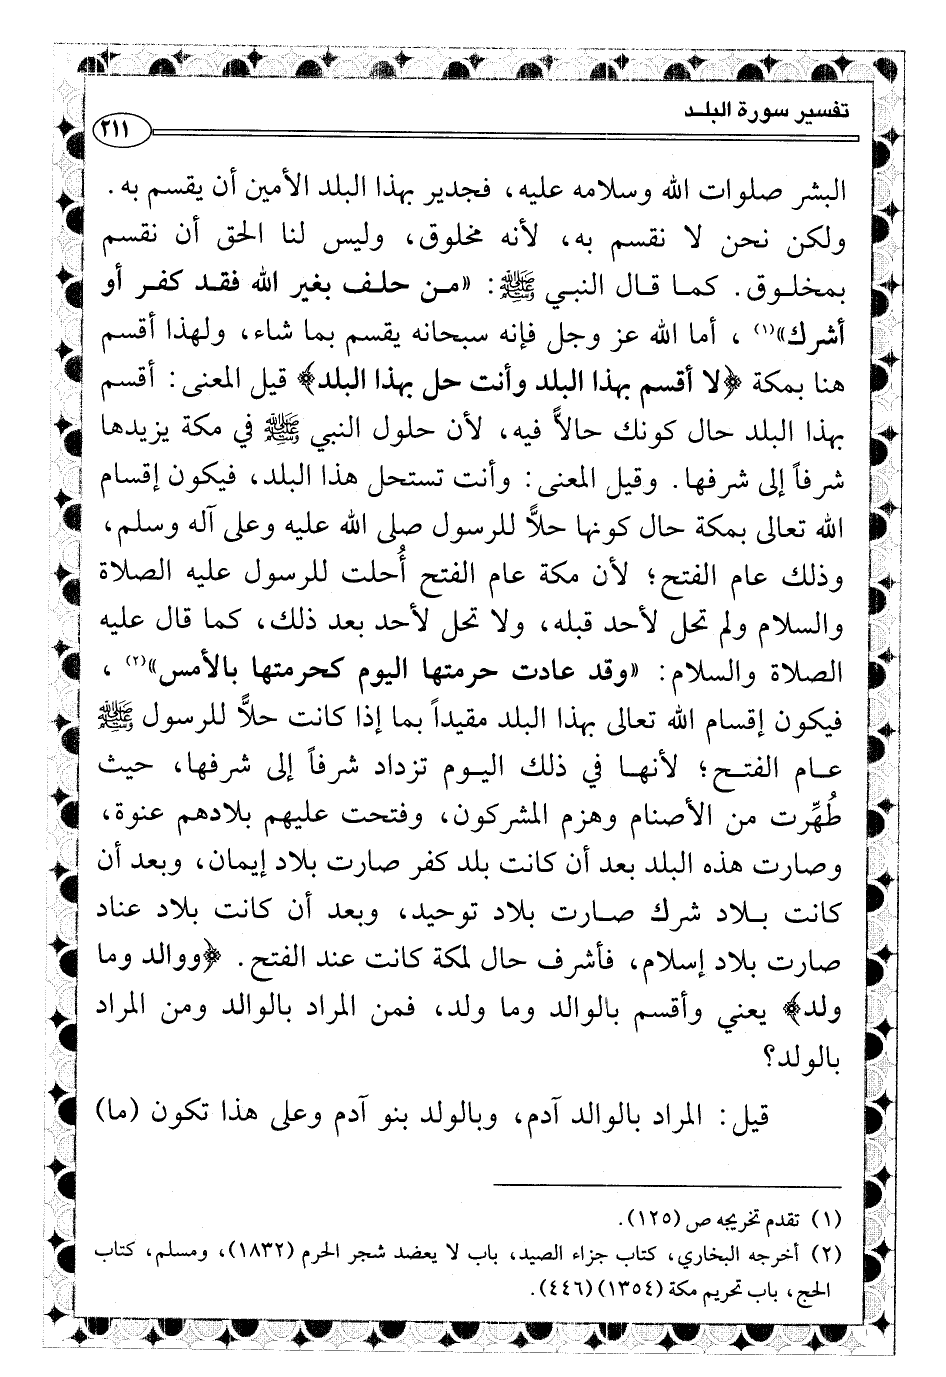 تفسير سورة البلد
٢١١
البشر صلوات الله وسلامه عليه، فجدير بهذا البلد الأمين أن يقسم به.
ولكن نحن لا نقسم به، لأنه مخلوق، وليس لنا الحق أن نقسم
بمخلوق. كما قال النبي ﷺ: «من حلف بغير الله فقد كفر أو
أشرك»(١)، أما الله عز وجل فإنه سبحانه يقسم بما شاء، ولهذا أقسم
هنا بمكة ﴿لا أقسم بهذا البلد وأنت حل بهذا البلد﴾ قيل المعنى: أقسم
بهذا البلد حال كونك حالاًّ فيه، لأن حلول النبي ﷺ في مكة يزيدها
شرفاً إلى شرفها. وقيل المعنى: وأنت تستحل هذا البلد، فيكون إقسام
الله تعالى بمكة حال كونها حلاًّ للرسول صلى الله عليه وعلى آله وسلم،
وذلك عام الفتح؛ لأن مكة عام الفتح أُحلت للرسول عليه الصلاة
والسلام ولم تحل لأحد قبله، ولا تحل لأحد بعد ذلك، كما قال عليه
الصلاة والسلام: «وقد عادت حرمتها اليوم كحرمتها بالأمس»(٢)،
فيكون إقسام الله تعالى بهذا البلد مقيداً بما إذا كانت حلاًّ للرسول ﷺ
عام الفتح؛ لأنها في ذلك اليوم تزداد شرفاً إلى شرفها، حيث
طُهِّرت من الأصنام وهزم المشركون، وفتحت عليهم بلادهم عنوة،
وصارت هذه البلد بعد أن كانت بلد كفر صارت بلاد إيمان، وبعد أن
كانت بلاد شرك صارت بلاد توحيد، وبعد أن كانت بلاد عناد
صارت بلاد إسلام، فأشرف حال لمكة كانت عند الفتح. ﴿ووالد وما
ولد﴾ يعني وأقسم بالوالد وما ولد، فمن المراد بالوالد ومن المراد
بالولد؟
قيل: المراد بالوالد آدم، وبالولد بنو آدم وعلى هذا تكون (ما)
(١) تقدم تخريجه ص (١٢٥).
(٢) أخرجه البخاري، كتاب جزاء الصيد، باب لا يعضد شجر الحرم (١٨٣٢)، ومسلم، كتاب
الحج، باب تحريم مكة (١٣٥٤) (٤٤٦).